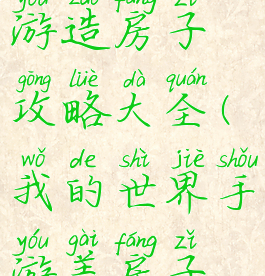 游造房子
gōng lüè dà quán
攻略大全(
wǒ de shì jiè shǒu
我的世界手
yóu gài fáng zǐ
游盖房子